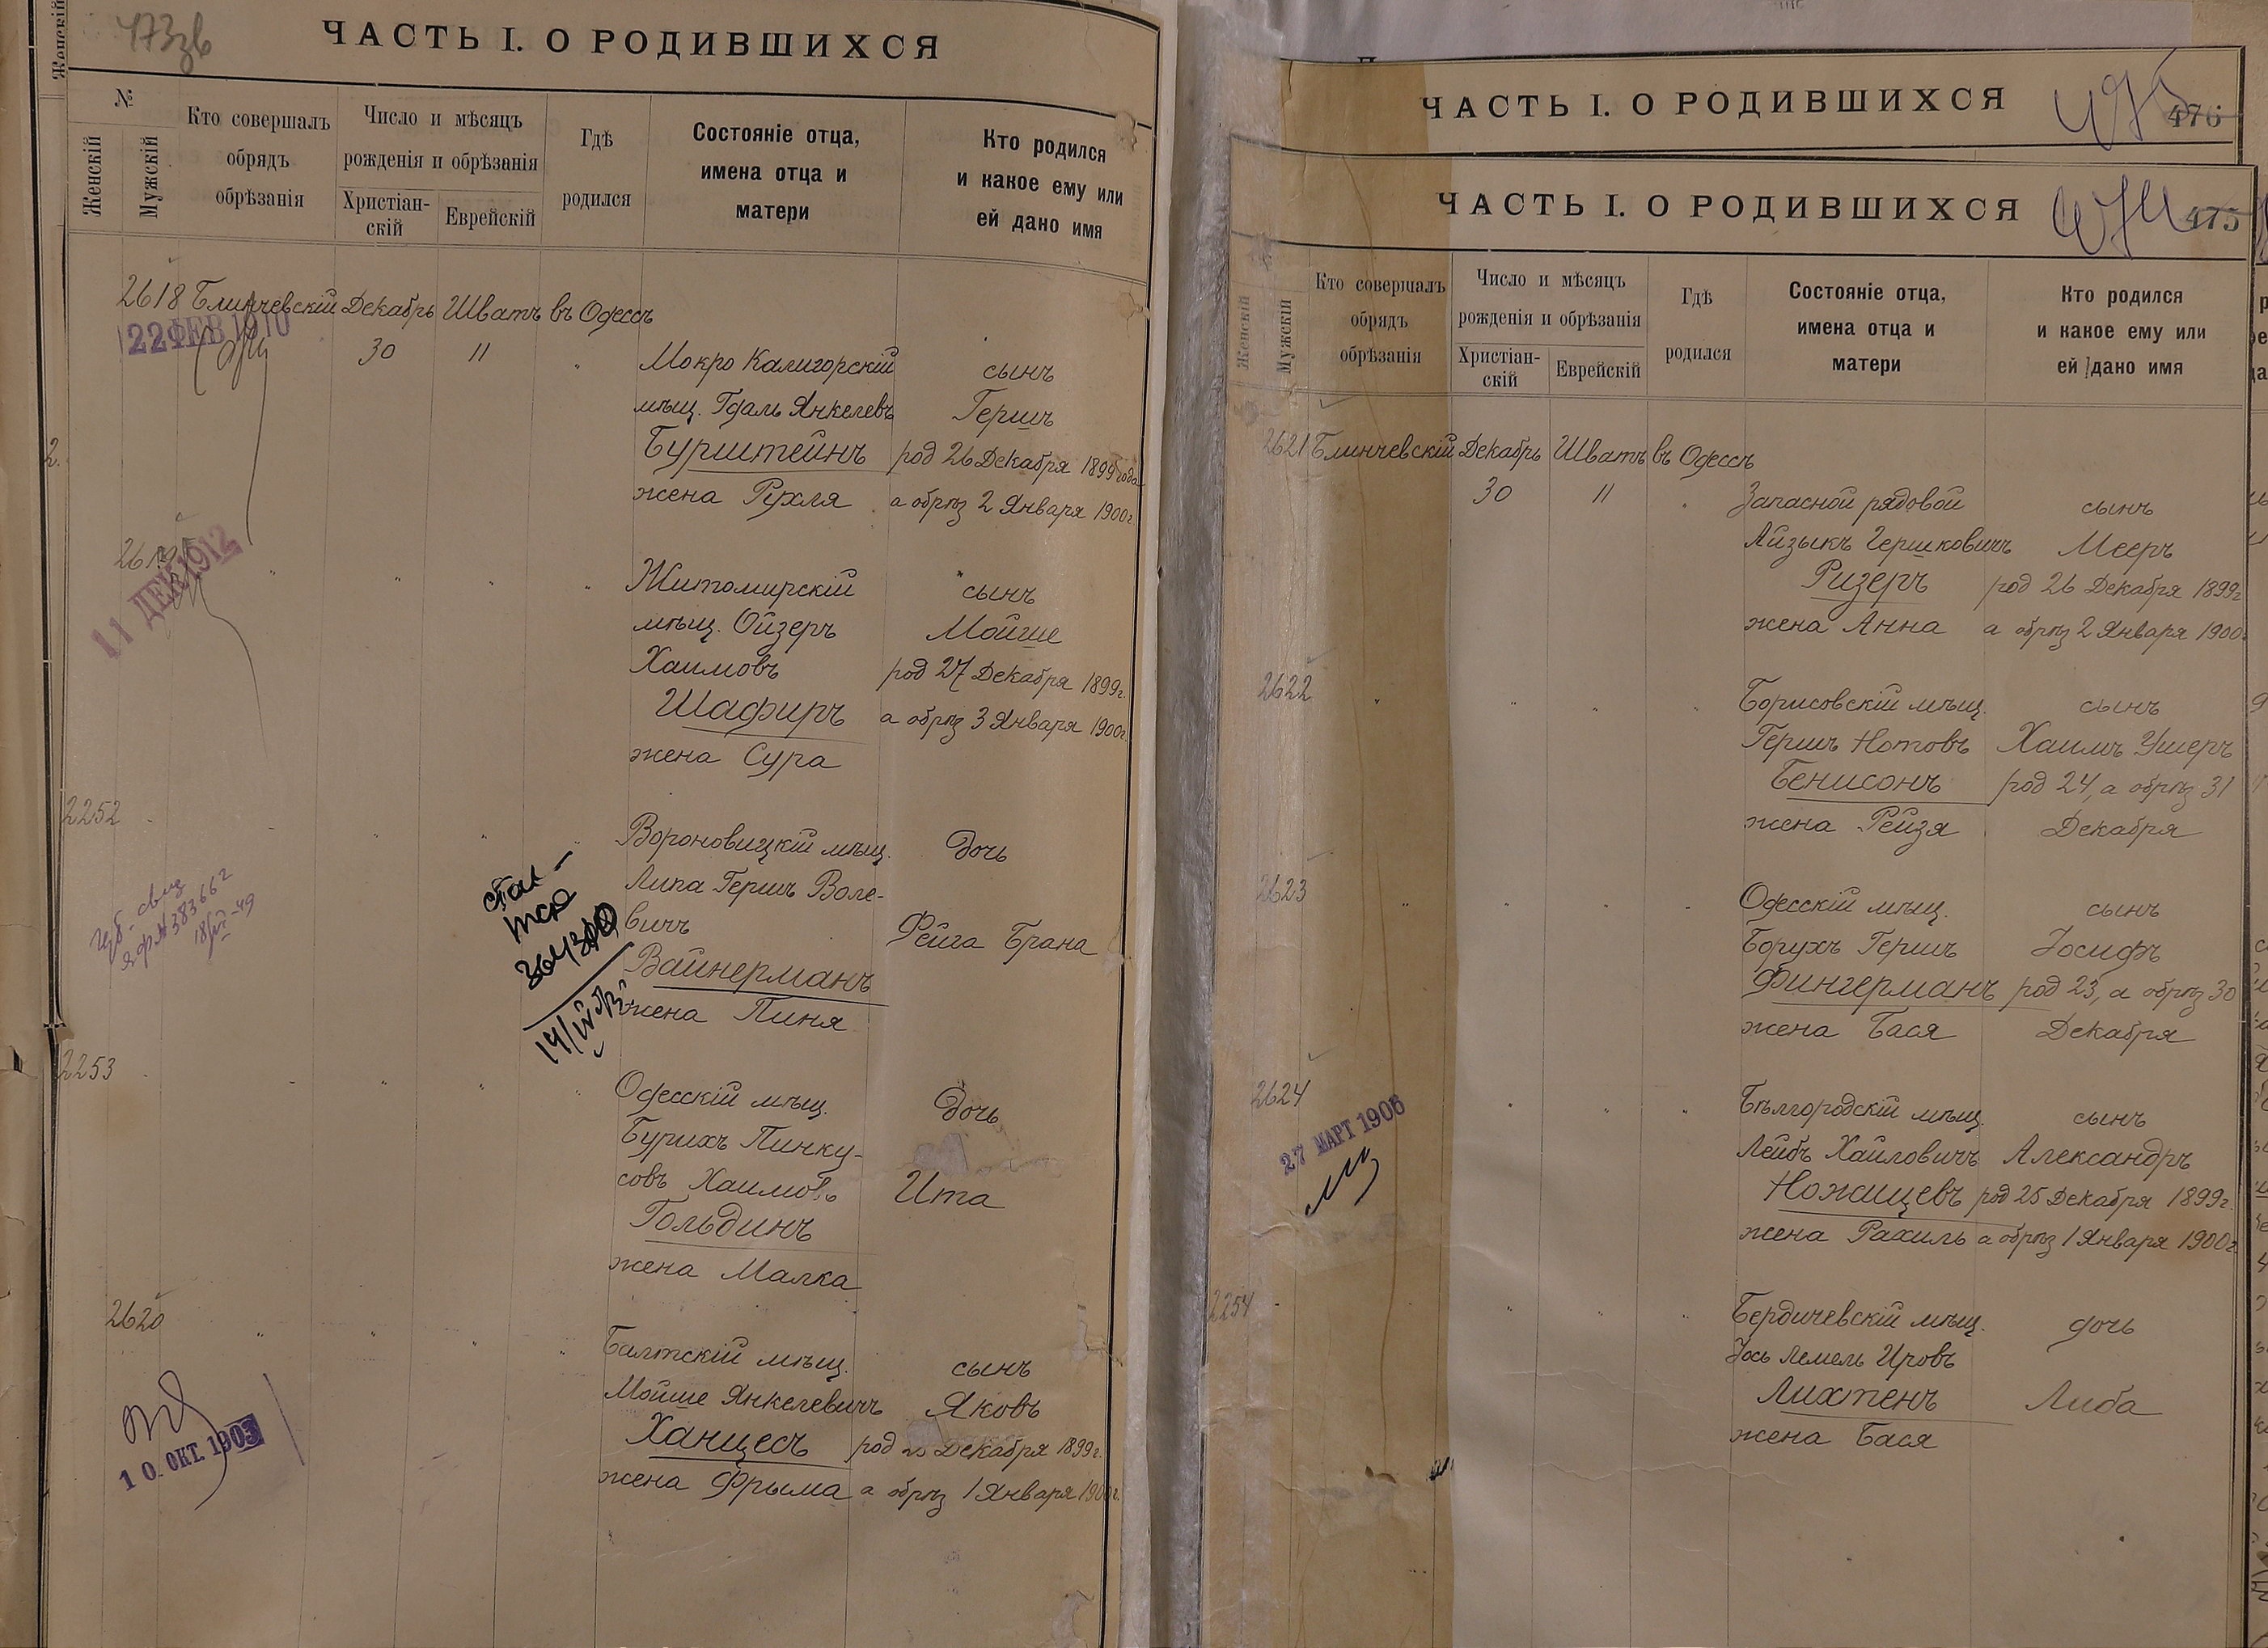 473зв
ЧАСТЬ I. О РОДИВШИХСЯ
№
Женскій
Мужскій
Кто совершалъ
обрядъ
обрѣзанія
Число и мѣсяцъ
рожденія и обрѣзанія
Христіан-
скій
Еврейскій
Гдѣ
родился
Состояніе отца,
имена отца и
матери
Кто родился
и какое ему или
ей дано имя
2618 Блинчевскій Декабрь Шватъ въ Одессѣ
22 ФЕВ 1910
30 11
Мокро Калигорскій сынъ
мѣщ. Гдаль Янкелевъ Гершъ
Бурштейнъ род 26 Декабря 1899 года
жена Рухля а обрѣз 2 Января 1900г.
11 ДЕК 1912
Житомирскій сынъ
мѣщ. Ойзеръ Мойше
Хаимовъ род 27 Декабря 1899г.
Шафиръ а обрѣз 3 Января 1900г.
жена Сура
2252
Вороновицкій мѣщ. Дочь
Липа Гершъ Воле-
вичъ Фейга Брана
Вайнерманъ
жена Пиня
2253
Одесскій мѣщ. Дочь
Бурихъ Пинку-
совъ Хаимовъ Ита
Гольдинъ
жена Малка
2620
Балтскій мѣщ. сынъ
Мойше Янкелевичъ Яковъ
Ханцесъ род Декабря 1899г.
жена Фрыма а обрѣз 1 Января 1900г.
10 ОКТ. 1903
ЧАСТЬ I. О РОДИВШИХСЯ
475
476
ЧАСТЬ I. О РОДИВШИХСЯ
474
475
Женскій
Мужскій
Кто совершалъ
обрядъ
обрѣзанія
Число и мѣсяцъ
рожденія и обрѣзанія
Христіан-
скій
Еврейскій
Гдѣ
родился
Состояніе отца,
имена отца и
матери
Кто родился
и какое ему или
ей дано имя
2621 Блинчевскій Декабрь Шватъ въ Одессѣ
30 11
Запасной рядовой сынъ
Айзыкъ Гершковичъ Мееръ
Ризеръ род 26 Декабря 1899г
жена Анна а обрѣз 2 Января 1900г
2622
Борисовскій мѣщ. сынъ
Гершъ Нотовъ Хаимъ Ушеръ
Бенисонъ род 24, а обрѣз 31
жена Рейзя Декабря
2623
Одесскій мѣщ. сынъ
Борухъ Гершъ Іосифъ
Фингерманъ род 23, а обрѣз 30
жена Бася Декабря
2624
Бѣлгородскій мѣщ. сынъ
27 МАРТ 1906
Лейбъ Хаиловичъ Александръ
Ножицевъ род 25 Декабря 1899г.
жена Рахиль а обрѣз 1 Января 1900г.
2254
Бердичевскій мѣщ. дочь
Іось Лемель Ировъ
Лихтенъ Либа
жена Бася